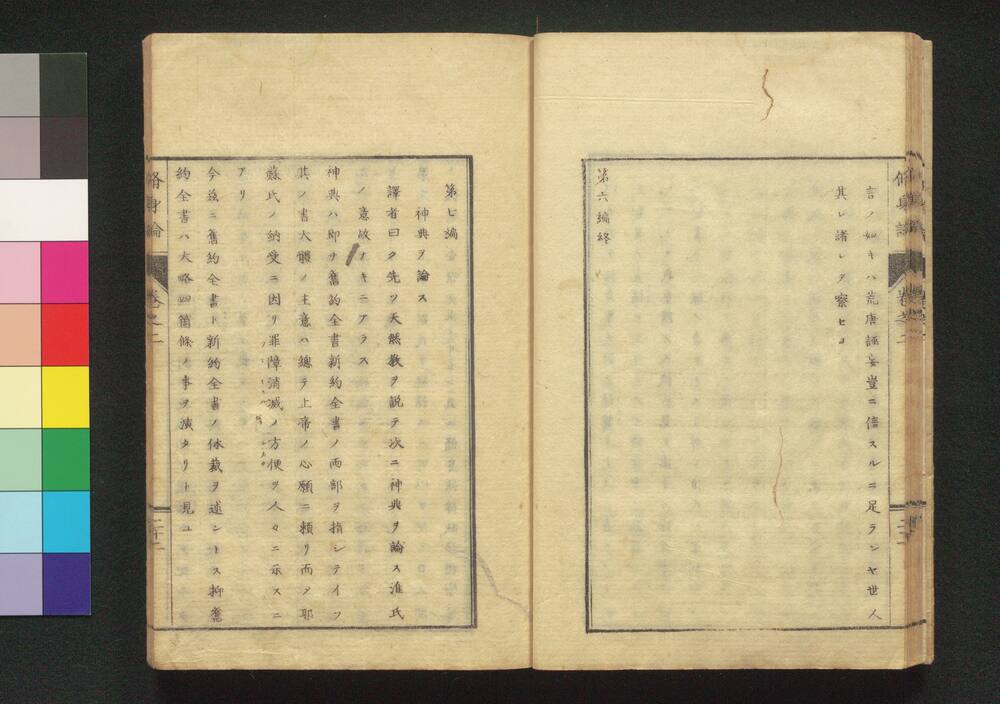 言ノ如キハ荒唐誣妄豈ニ信スルニ足ランヤ世人
其レ諸レヲ察セヨ
第六編終
脩身論
巻之二
第七編
神典ヲ論ス
譯者曰ク先ツ天然教ヲ説テ次ニ神典ヲ論ス淮氏
ノ意故ナキニアラス
神典ハ即チ舊約全書新約全書ノ両部ヲ指シテイフ
其ノ書大體ノ主意ハ總テ上帝ノ心願ニ頼リ而ノ耶
蘇氏ノ納受ニ因リ罪障消滅ノ方便ヲ人々ニ示スニ
アリ
今茲ニ舊約全書ト新約全書ノ体裁ヲ述ントス抑舊
約全書ハ大略四箇條ノ事ヲ演タリト見ユ
脩身論
巻之二